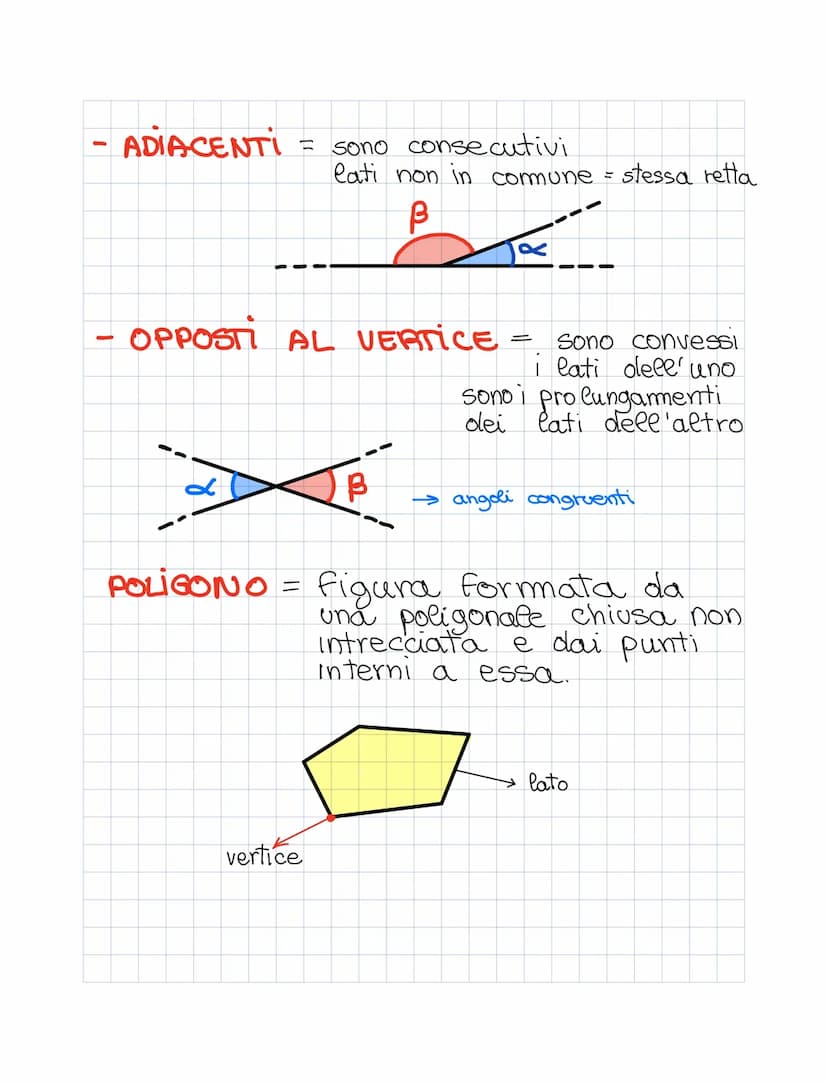 - ADIACENTI = sono consecutivi
lati non in comune = stessa retta
β
α
- OPPOSTI AL VERTICE = sono convessi
i lati dell'uno
sono i prolungamenti
dei lati dell'altro
α β → angoli congruenti
POLIGONO = figura formata da
una poligonale chiusa non
intrecciata e dai punti
interni a essa.
lato
vertice